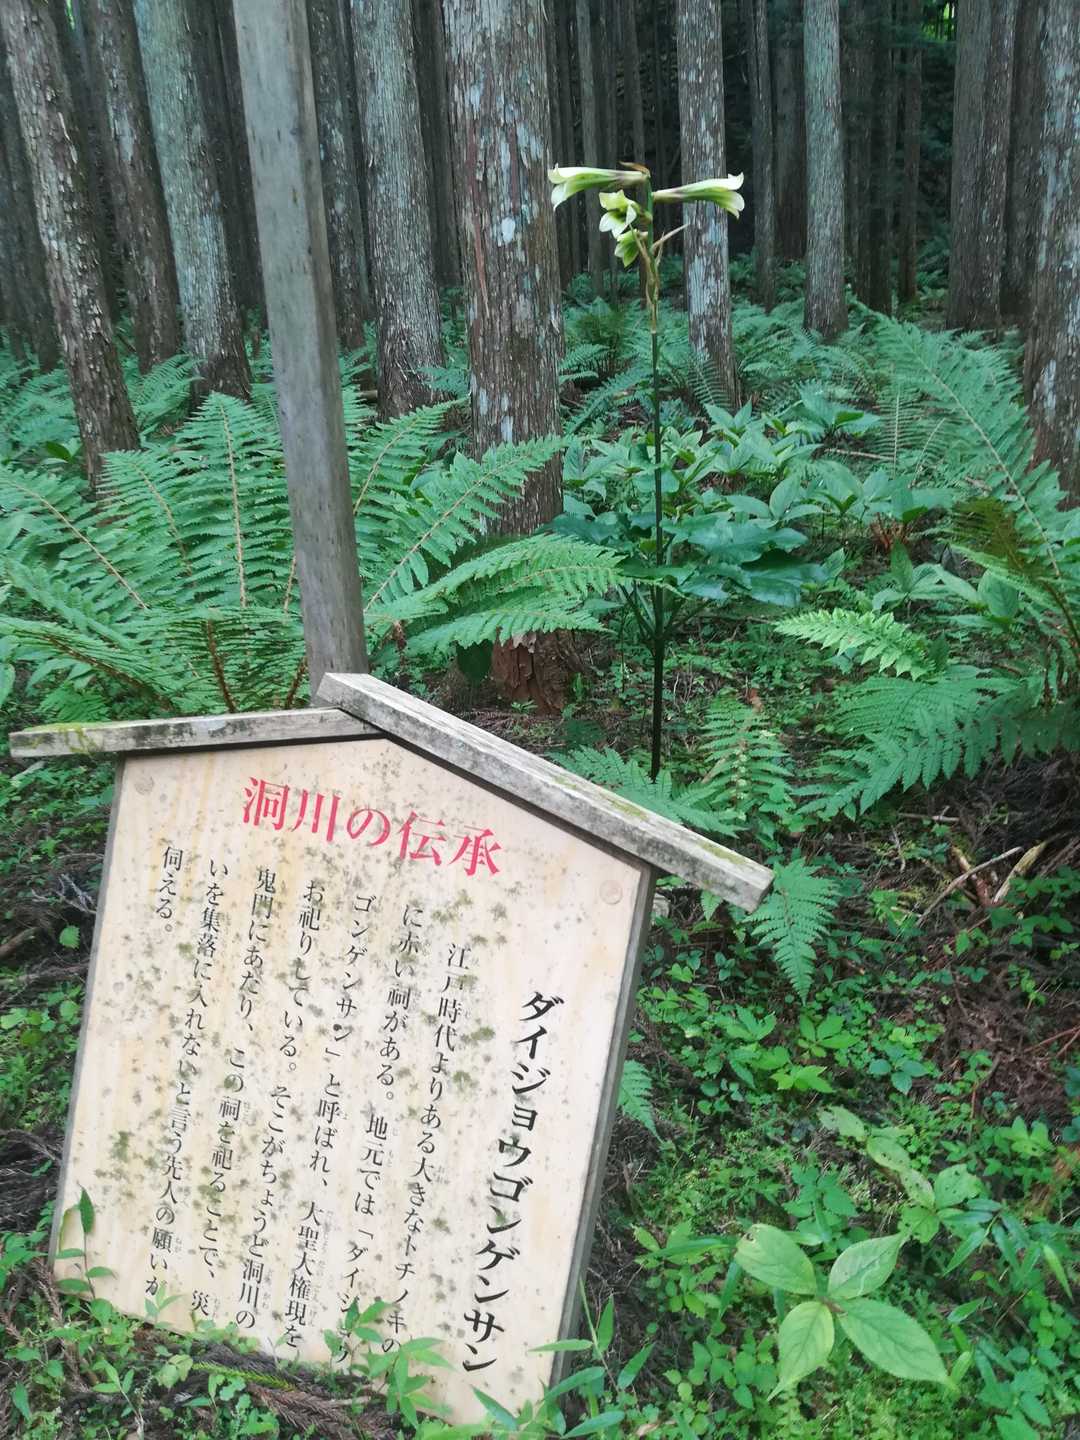 洞川の伝承
ダイジョウゴンゲンサン
江戸時代よりある大きなトチノキの
に赤い祠がある。地元では「ダイジョウ
ゴンゲンサン」と呼ばれ、大聖大権現を
お祀りしている。そこがちょうど洞川の
鬼門にあたり、この祠を祀ることで、災
いを集落に入れないと言う先人の願いが
伺える。